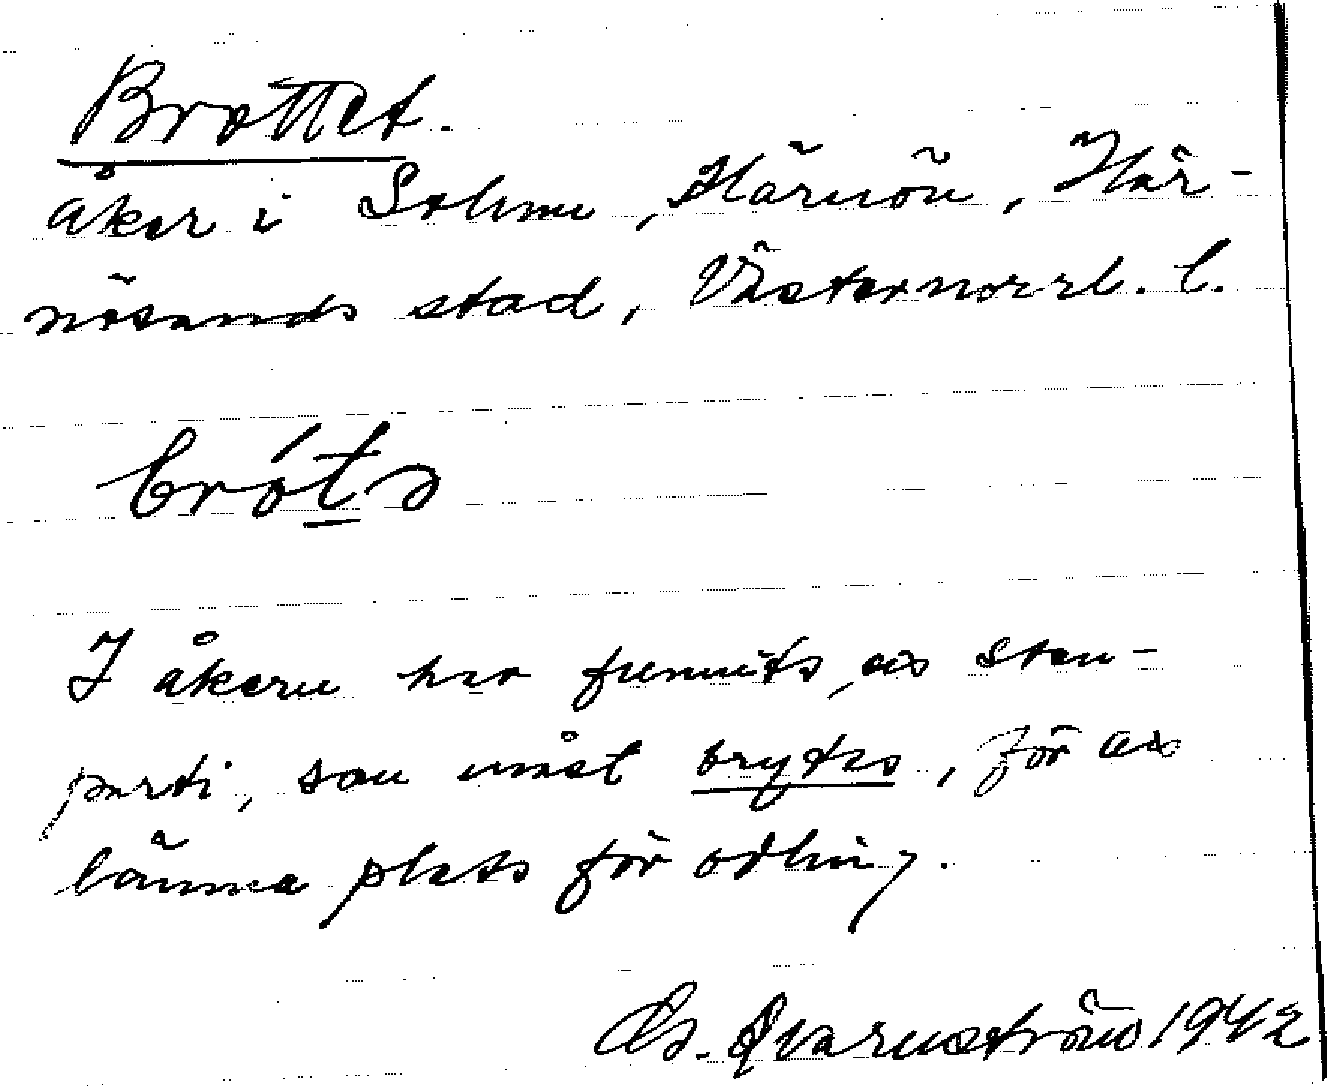 Brottet.
åker i Solum, Härnön, Här-
nösands stad, Västernorrl. l.
brót̲ə
I åkern har funnits, ett sten-
parti, som måst brytas, för att
lämna plats för odling.
Es. Qvarnström 1942